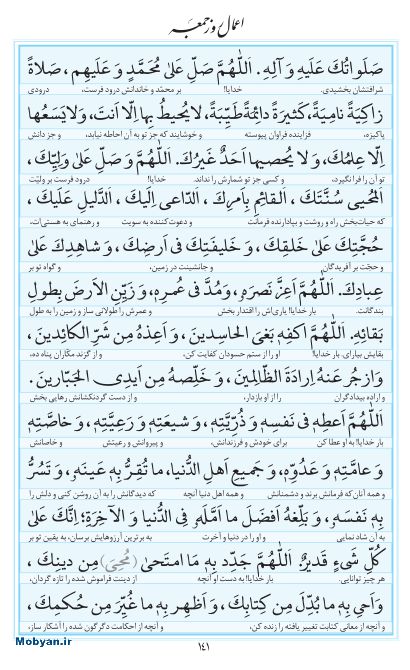 اعمال روز جمعه
صَلَواتُكَ عَلَيهِ وَ آلِهِ. اَللّٰهُمَّ صَلِّ عَلىٰ مُحَمَّدٍ وَ عَلَيهِم، صَلاةً
شرافتشان بخشیدی. خدایا! بر محمّد و خاندانش درود فرست، درودی
زاكِيَةً نامِيَةً، كَثيرَةً دائِمَةً طَيِّبَةً، لا يُحيطُ بِها اِلّا اَنتَ، وَ لا يَسَعُها
پاکیزه، فزاینده فراوان پیوسته و خوشایند که جز تو به آن احاطه نیابد، و جز دانش
اِلّا عِلمُكَ، وَ لا يُحصيها اَحَدٌ غَيرُكَ. اَللّٰهُمَّ وَ صَلِّ عَلىٰ وَلِيِّكَ،
تو آن را فرا نگیرد، و کسی جز تو شمارش را نداند. خدایا! درود فرست بر ولیّت
اَلمُحيي سُنَّتَكَ، اَلقائِمِ بِاَمرِكَ، اَلدّاعي اِلَيكَ، اَلدَّليلِ عَلَيكَ،
که حیات‌بخش راه و روشت و بپادارنده فرمانت و دعوت‌کننده به سویت و رهنمای به هستی‌ات،
حُجَّتِكَ عَلىٰ خَلقِكَ، وَ خَليفَتِكَ في اَرضِكَ، وَ شاهِدِكَ عَلىٰ
و حجّت بر آفریدگان و جانشینت در زمین، و گواه تو بر
عِبادِكَ. اَللّٰهُمَّ اَعِزَّ نَصرَهُ، وَ مُدَّ في عُمرِهِ، وَ زَيِّنِ الاَرضَ بِطولِ
بندگانت. بار خدایا! یاری‌اش را اقتدار بخش و عمرش را طولانی ساز و زمین را به طول
بَقائِهِ. اَللّٰهُمَّ اكفِهِ بَغيَ الحاسِدينَ، وَ اَعِذهُ مِن شَرِّ الكائِدينَ،
بقایش بیارای. بار خدایا! او را از ستم حسودان کفایت کن، و از گزند مکّاران پناه ده،
وَ ازجُر عَنهُ اِرادَةَ الظّالِمينَ، وَ خَلِّصهُ مِن اَيدِي الجَبّارينَ.
و اراده بیدادگران را از او بازدار، و از دست گردنکشانش رهایی بخش
اَللّٰهُمَّ اَعطِهِ في نَفسِهِ وَ ذُرِّيَّتِهِ، وَ شيعَتِهِ وَ رَعِيَّتِهِ، وَ خاصَّتِهِ
بار خدایا! به او عطا کن برای خودش و فرزندانش، و پیروانش و رعیتش و خاصانش
وَ عامَّتِهِ وَ عَدُوِّهِ، وَ جَميعِ اَهلِ الدُّنيا، ما تُقِرُّ بِهِ عَينَهُ، وَ تَسُرُّ
و همه آنان که فرمانش برند و دشمنانش و همه اهل دنیا آنچه که دیدگانش را به آن روشن کنی و دلش را
بِهِ نَفسَهُ، وَ بَلِّغهُ اَفضَلَ ما اَمَّلَهُ فِي الدُّنيا وَ الآخِرَةِ؛ اِنَّكَ عَلىٰ
به آن شاد نمایی و او را در دنیا و آخرت به برترین آرزوهایش برسان، به یقین تو بر
كُلِّ شَيءٍ قَديرٌ. اَللّٰهُمَّ جَدِّد بِهِ مَا امتَحىٰ (مُحِيَ) مِن دينِكَ،
هر چیز توانایی. بار خدایا! به دست او آنچه از دینت فراموش شده را تازه گردان،
وَ اَحيِ بِهِ ما بُدِّلَ مِن كِتابِكَ، وَ اَظهِر بِهِ ما غُيِّرَ مِن حُكمِكَ،
و آنچه از معانی کتابت تغییر یافته را زنده کن، و آنچه از احکامت دگرگون شده را آشکار ساز،
١٤١
Mobyan.ir